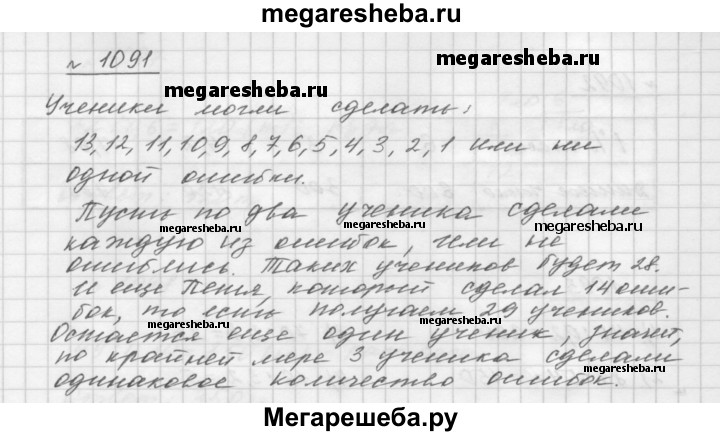 megaresheba.ru
№ 1091
megaresheba.ru
megaresheba.ru
Ученики могли сделать:
13, 12, 11, 10, 9, 8, 7, 6, 5, 4, 3, 2, 1 или ни
одной ошибки.
Пусть по два ученика сделали
megaresheba.ru
megaresheba.ru
каждую из ошибок, чем не
ошиблись. Таких учеников будет 28.
И еще Петя, который сделал 14 оши-
бок, то есть получаем 29 учеников.
megaresheba.ru
megaresheba.ru
Остается еще один ученик, значит,
по крайней мере 3 ученика сделали
одинаковое количество ошибок.
Мегарешеба.ру